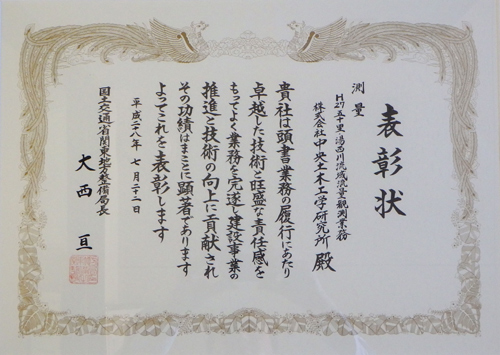 表彰状
測量
H27五十里 湯西川流域流量観測業務
株式会社中央土木工学研究所 殿
貴社は頭書業務の履行にあたり
卓越した技術と旺盛な責任感を
もってよく業務を完遂し建設事業の
推進と技術の向上に貢献され
その功績はまことに顕著であります
よってこれを表彰します
平成二十八年 七月二十二日
国土交通省関東地方整備局長
大西 亘